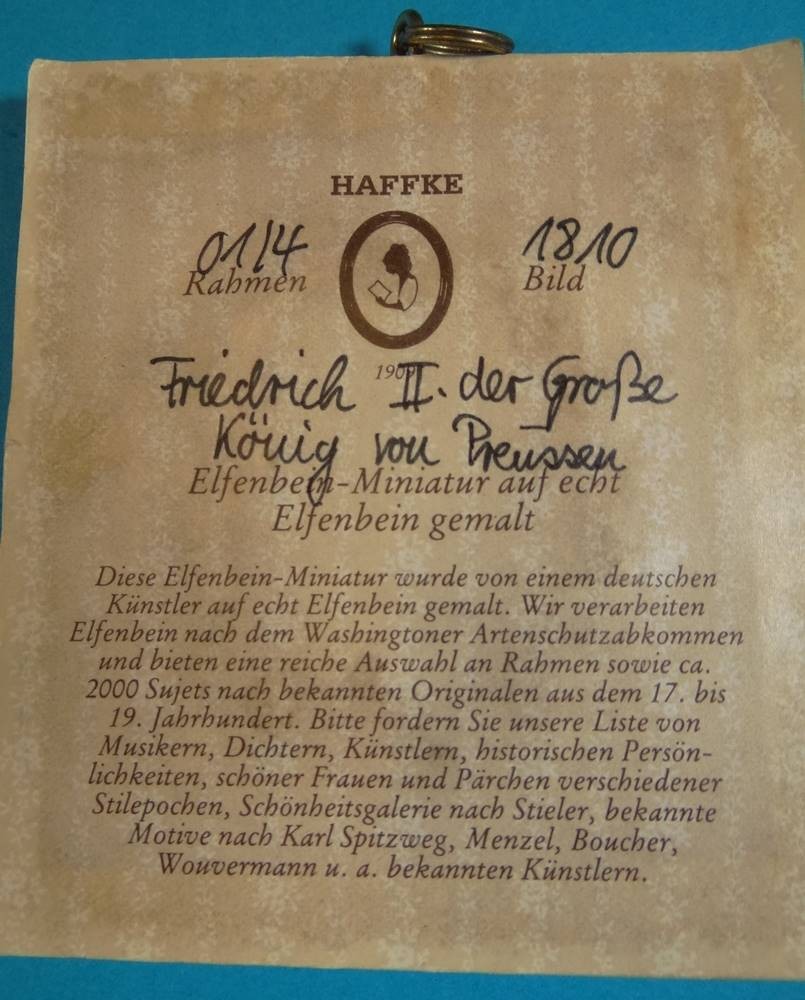 HAFFKE
01/4 1810
Rahmen Bild
Friedrich II. der Große
König von Preussen
Elfenbein-Miniatur auf echt
Elfenbein gemalt
Diese Elfenbein-Miniatur wurde von einem deutschen
Künstler auf echt Elfenbein gemalt. Wir verarbeiten
Elfenbein nach dem Washingtoner Artenschutzabkommen
und bieten eine reiche Auswahl an Rahmen sowie ca.
2000 Sujets nach bekannten Originalen aus dem 17. bis
19. Jahrhundert. Bitte fordern Sie unsere Liste von
Musikern, Dichtern, Künstlern, historischen Persön-
lichkeiten, schöner Frauen und Pärchen verschiedener
Stilepochen, Schönheitsgalerie nach Stieler, bekannte
Motive nach Karl Spitzweg, Menzel, Boucher,
Wouvermann u. a. bekannten Künstlern.